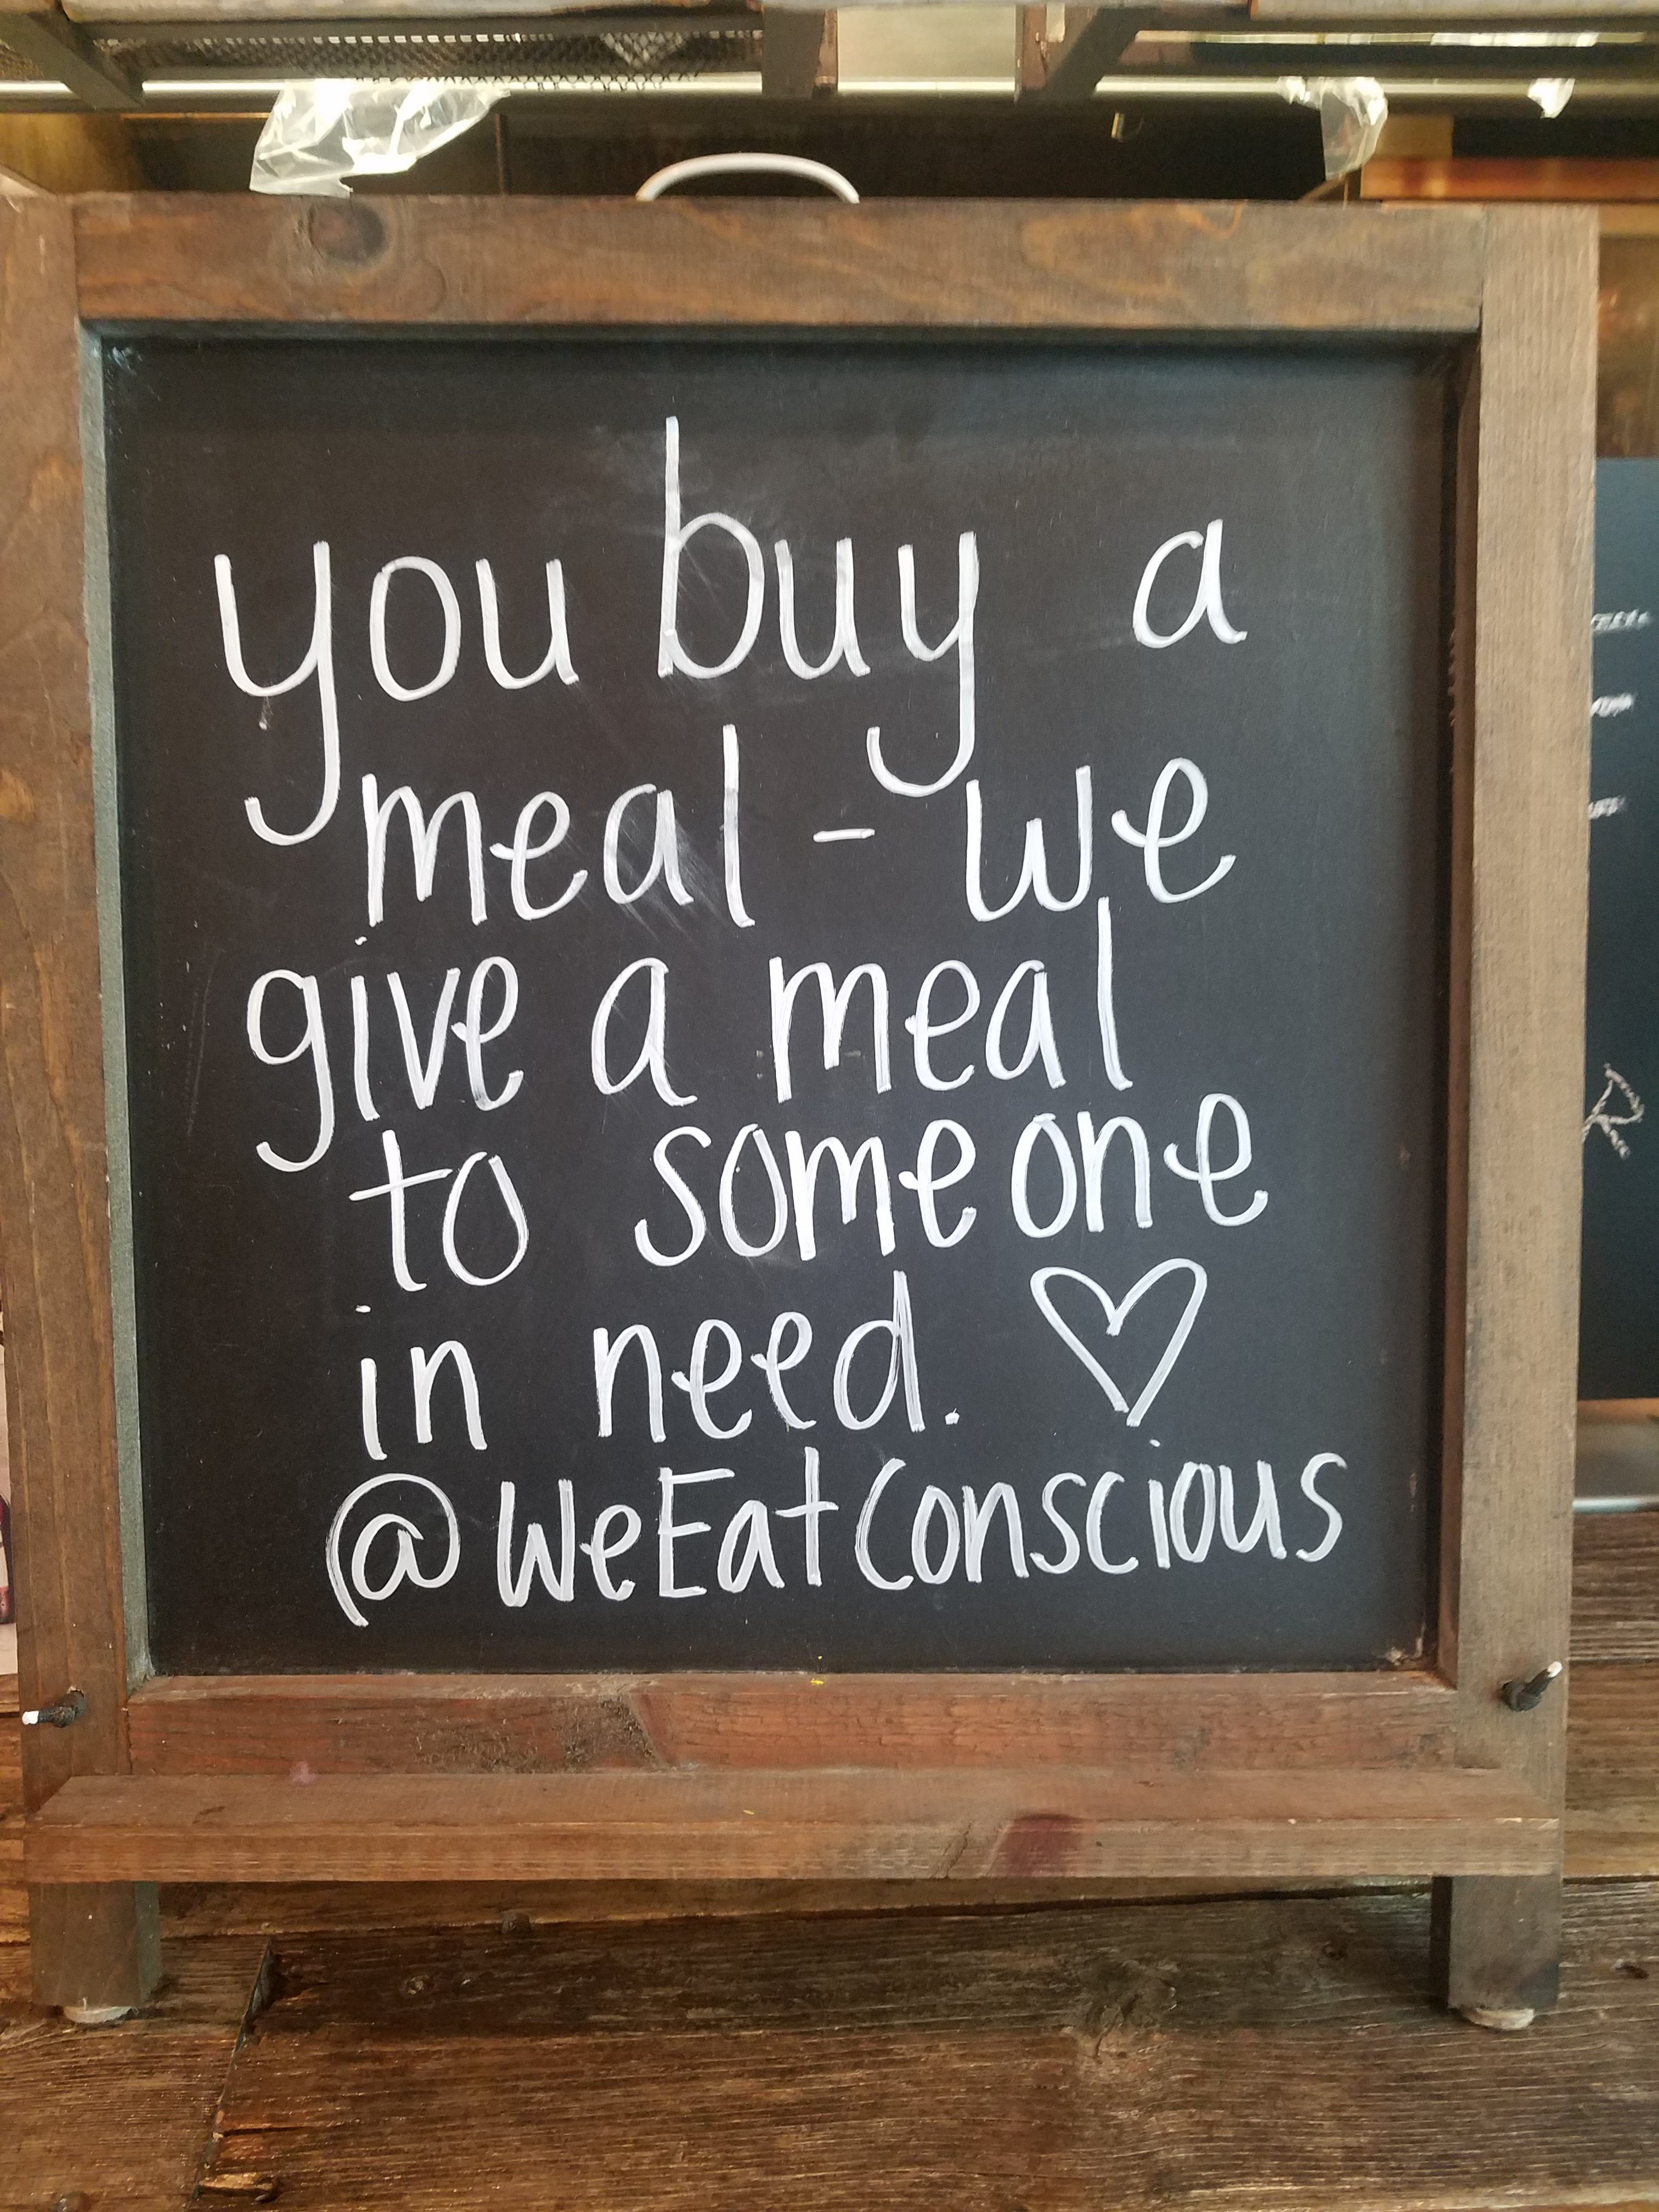 you buy a
meal - we
give a meal
to someone
in need. ♡
@WeEatConscious